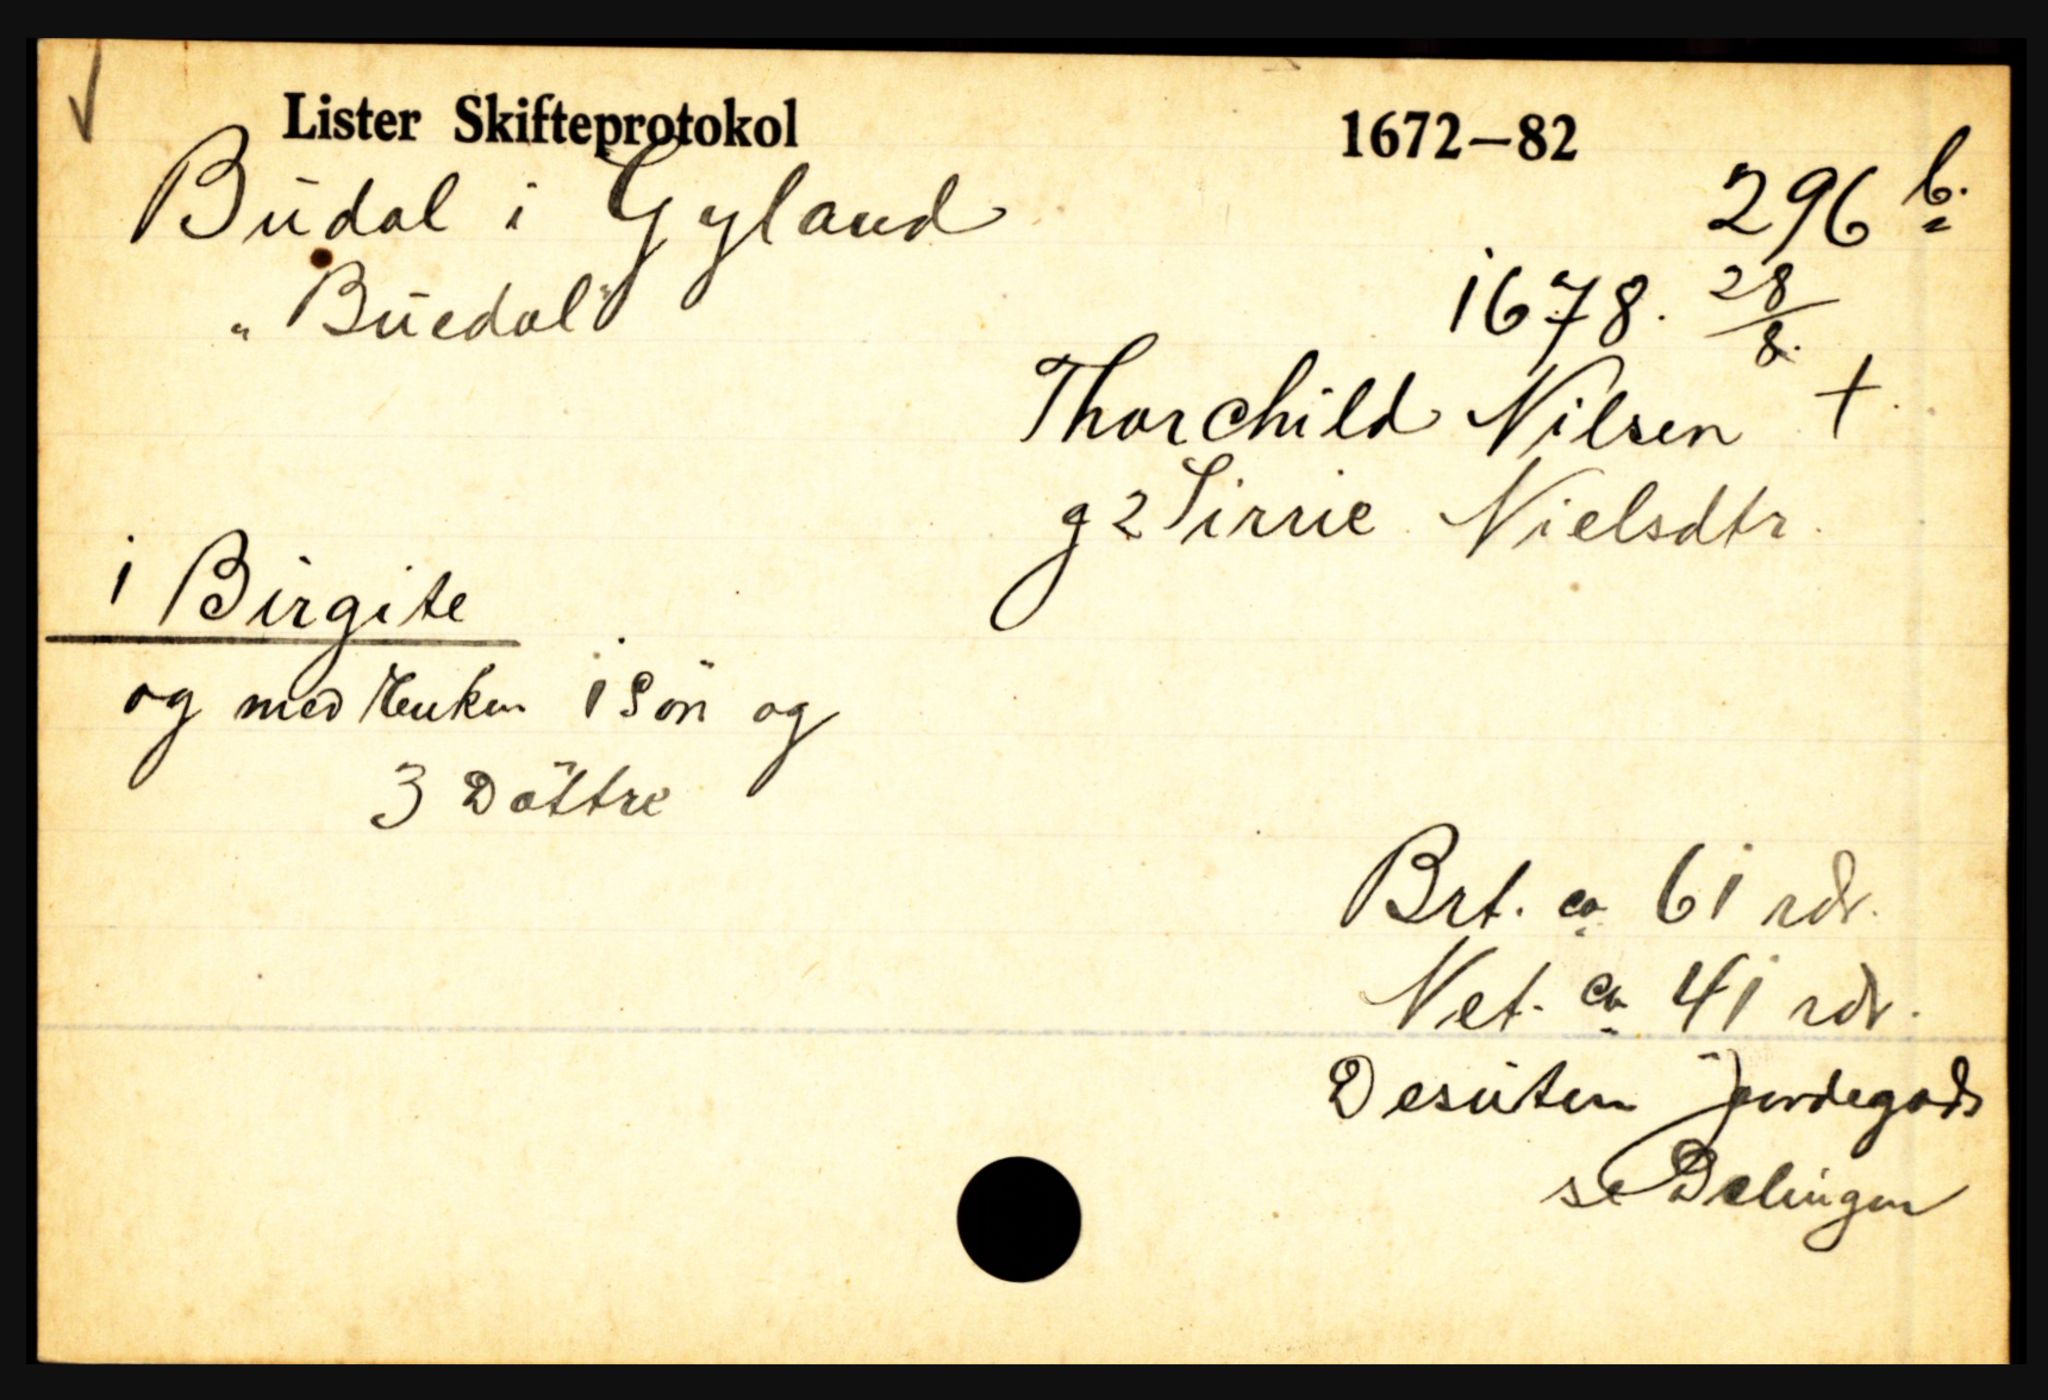 Lister Skifteprotokol 1672–82
Budal i Gyland 296 b.
"Buedal" 1678. 28/8.
Thorchild Nilsen +
g 2 Sirrie Nielsdtr.
1 Birgite
og med Enken 1 Sön og
3 Döttre
Brt. ca 61 rdr.
Net. ca 41 rdr.
Desuten Jordegods
se Delingen